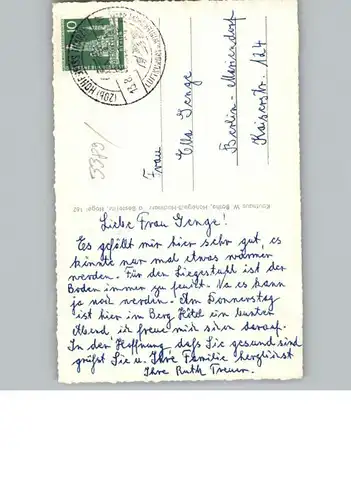 Frau
Ella Genge
Berlin-Mariendorf
Kaiserstr. 124
10
(20b) HOHEGEISS
53623
Liebe Frau Genge!
Es gefällt mir hier sehr gut, es
könnte nur mal etwas wärmer
werden. Für den Liegestuhl ist der
Boden immer zu feucht. Na es kann
ja noch werden. Am Donnerstag
ist hier im Berg Hotel ein bunter
Abend ich freue mich schon darauf.
In der Hoffnung daß Sie gesund sind
grüßt Sie u. Ihre Familie herzlichst
Ihre Ruth